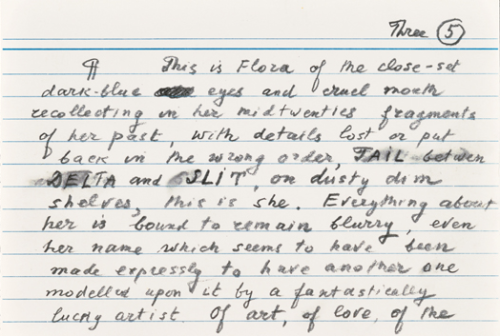 Three 5
¶ This is Flora of the close-set
dark-blue eyes and cruel mouth
recollecting in her midtwenties fragments
of her past, with details lost or put
back in the wrong order, TAIL betwen
DELTA and SLIT, on dusty dim
shelves, this is she. Everything about
her is bound to remain blurry, even
her name which seems to have been
made expressly to have another one
modelled upon it by a fantastically
lucky artist. Of art, of love, of the